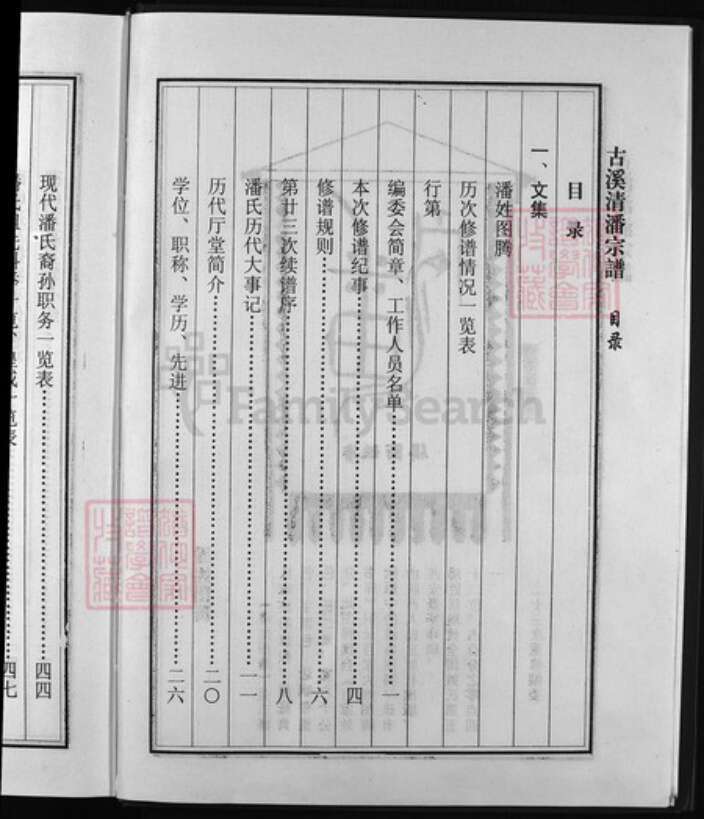 古溪清潘宗譜 目录
目录
一、文集
潘姓图腾
历次修谱情况一览表
行第
编委会简章、工作人员名单……一
本次修谱纪事……四
修谱规则……六
第廿三次续谱序……八
潘氏历代大事记……一一
历代厅堂简介……二〇
学位、职称、学历、先进……二六
现代潘氏裔孙职务一览表……四四
四七
FamilySearch